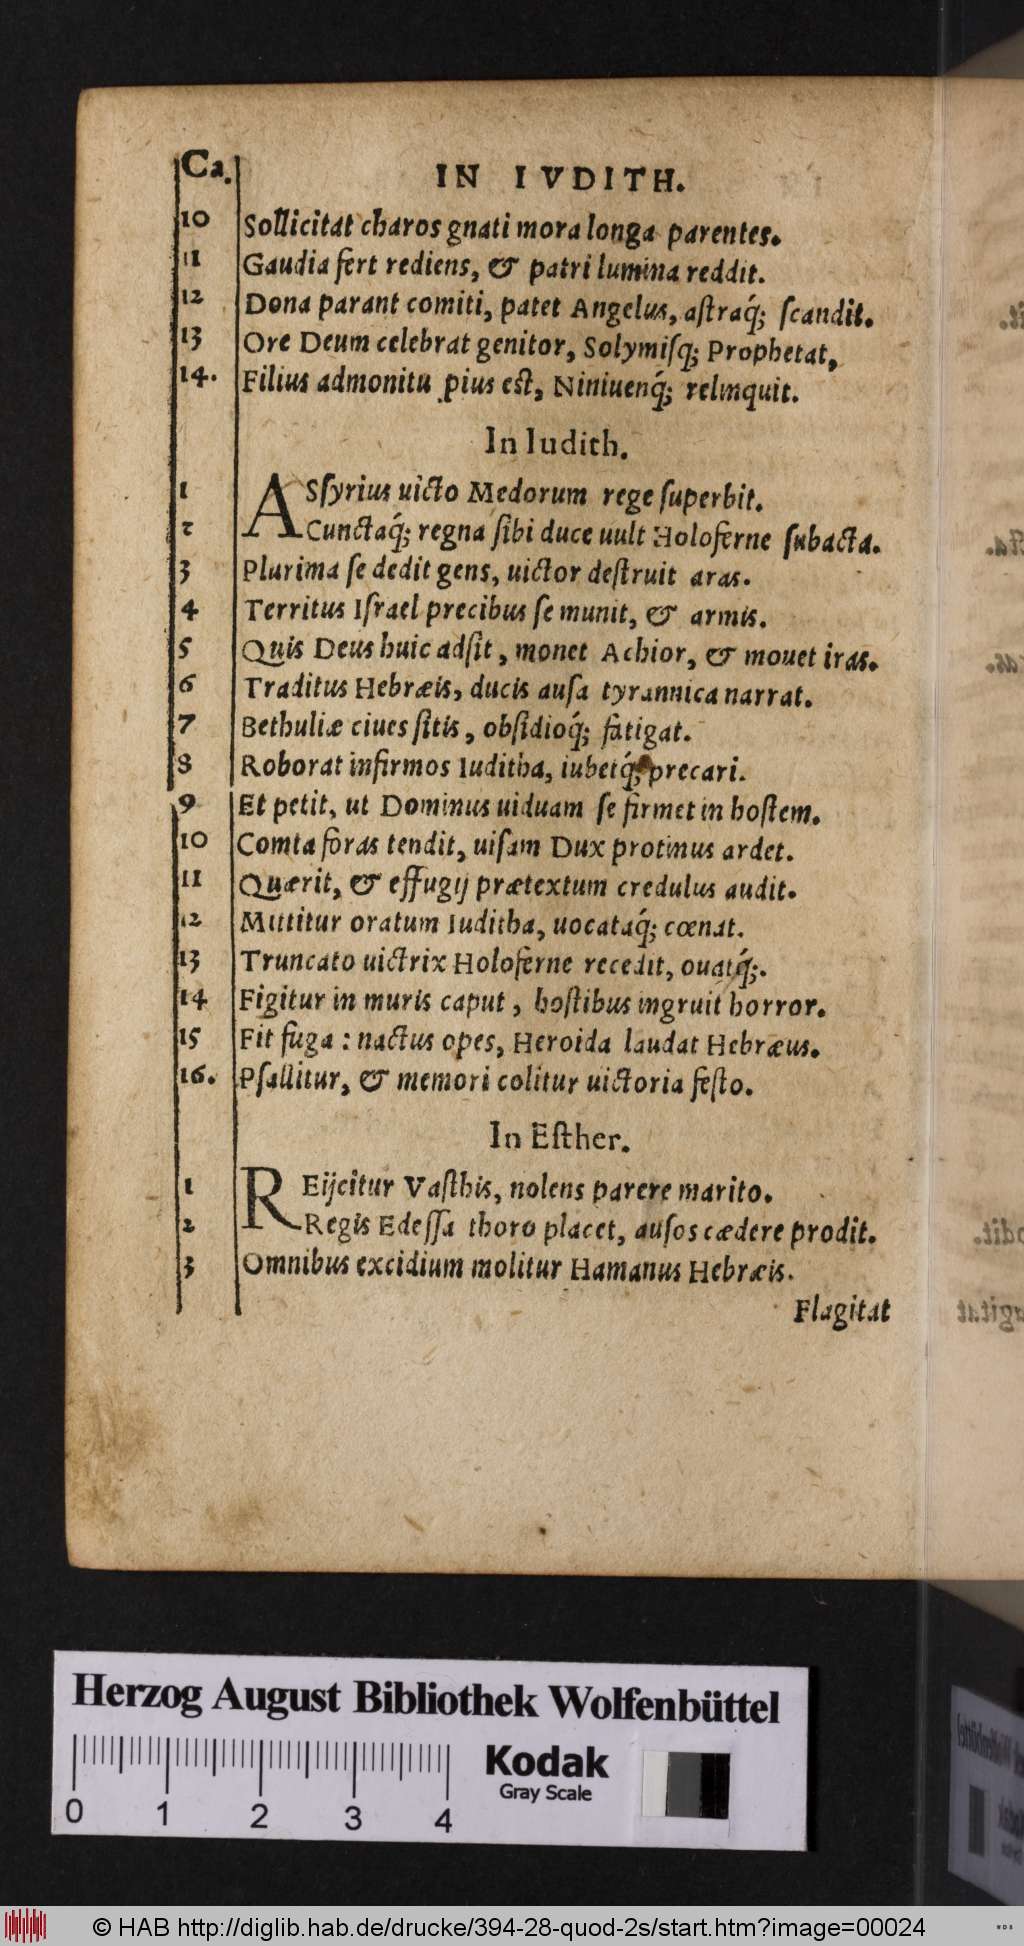 Ca. IN IVDITH.
10 Sollicitat charos gnati mora longa parentes.
11 Gaudia fert rediens, & patri lumina reddit.
12 Dona parant comiti, patet Angelus, astraq́; scandit.
13 Ore Deum celebrat genitor, Solymisq; Prophetat,
14. Filius admonitu pius est, Niniuenq́; relinquit.
In Iudith.
1 ASsyrius uicto Medorum rege superbit.
2 Cunctaq́; regna sibi duce uult Holoferne subacta.
3 Plurima se dedit gens, uictor destruit aras.
4 Territus Israel precibus se munit, & armis.
5 Quis Deus huic adsit, monet Achior, & mouet iras.
6 Traditus Hebræis, ducis ausa tyrannica narrat.
7 Bethuliæ ciues sitis, obsidioq́; fatigat.
8 Roborat infirmos Iuditha, iubetq́; precari.
9 Et petit, ut Dominus uiduam se firmet in hostem.
10 Comta foras tendit, uisam Dux protinus ardet.
11 Quærit, & effugij prætextum credulus audit.
12 Mittitur oratum Iuditha, uocataq́; cœnat.
13 Truncato uictrix Holoferne recedit, ouatq́;.
14 Figitur in muris caput, hostibus ingruit horror.
15 Fit fuga: nactus opes, Heroida laudat Hebræus.
16. Psallitur, & memori colitur uictoria festo.
In Esther.
1 REijcitur Vasthis, nolens parere marito.
2 Regis Edessa thoro placet, ausos cædere prodit.
3 Omnibus excidium molitur Hamanus Hebræis.
Flagitat
Herzog August Bibliothek Wolfenbüttel
Kodak
Gray Scale
0 1 2 3 4
© HAB http://diglib.hab.de/drucke/394-28-quod-2s/start.htm?image=00024